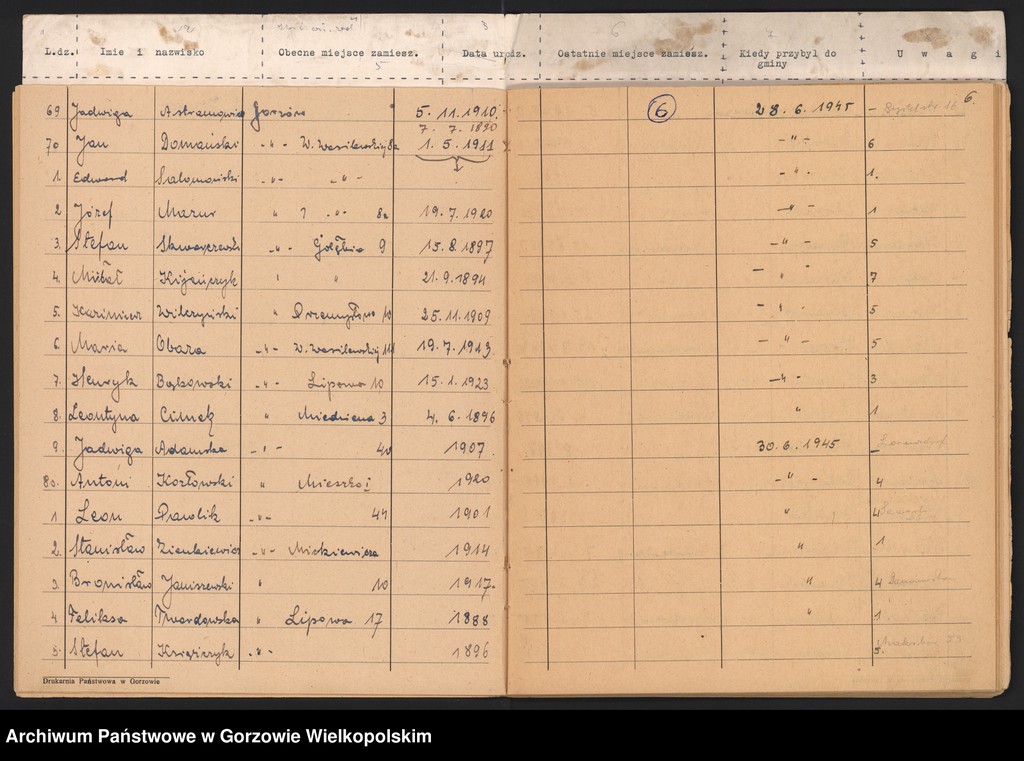 3 6
L.dz. Imie i nazwisko Obecne miejsce zamiesz. Data urodz. Ostatnie miejsce zamiesz. Kiedy przybył do gminy U w a g i
5
6.
69 Jadwiga Gorzów 5. 11. 1910. 6 28. 6. 1945 –
7. 7. 1890
70 Jan Domański - " - W. Wasilewskiej 8a 1. 5. 1911 - " - 6
1. Edward Salomoński - " - - " - - " - 1.
2 Józef Mazur " 7 - " - 8a 19. 7. 1920 - " - 1
3. Stefan Skwarczewski - " - Gołębia 9 15. 8. 1897 - " - 5
4. Michał Kijańczyk " " 21. 9. 1894 - " - 7
5. Kazimierz Wilczyński " Przemysłowa 10 25. 11. 1909 - " - 5
6. Maria Obara - " - W. Wasilewskiej 111 19. 7. 1913 - " - 5
7. Henryk Bąkowski - " - Lipowa 10 15. 1. 1923 - " - 3
8. Leontyna Cimek " Miedziana 3 4. 6. 1896 " 1
9. Jadwiga Adamska - " - 40 1907 30. 6. 1945 –
80. Antoni Kozłowski " Mieszka I 1920 - " - 4
1 Leon Pawlik - " - 44 1901 " 4
2. Stanisław Zienkiewicz - " - Mickiewicza 1914 " 1
3. Bronisław Janiszewski " 10 1917. " 4
4 Feliksa Twardowska " Lipowa 17 1888 " 1
5. Stefan Księżczyk - " - 1896 5.
Drukarnia Państwowa w Gorzowie
Archiwum Państwowe w Gorzowie Wielkopolskim